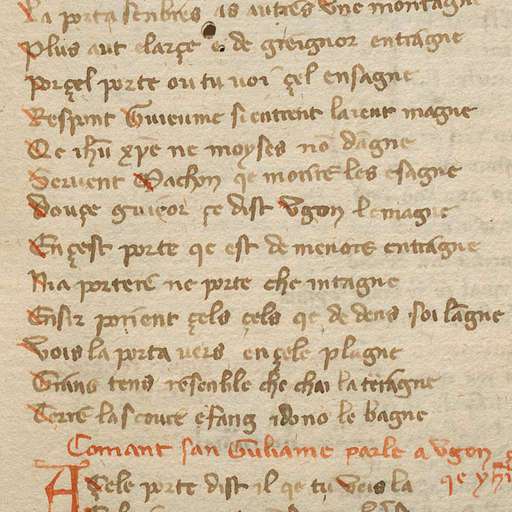 La porta senbres as autres une montagne
Plus aut e larçe e de greignor entragne
Por çel porte ou tu voi çel ensagne
Respont Guieume si entrent la ient magne
Qe ih̅u xp̅e ne moyses no d̅agne
Servent Machon qe
Douçe guieor çe dist Ugon le magne
En çest porte qe est de menors entragne
Nia porter̅e ne porte che intagne
Ensir porient çels çels qe de dens soi l̅agne
Vois la porta vers en çele plagne
Grans tens resenble che chai la teragne
Terre la scoure e fang idono le bagne
Comant san Guliame parle a Ugon
A çele porte dist il qe tu veis la